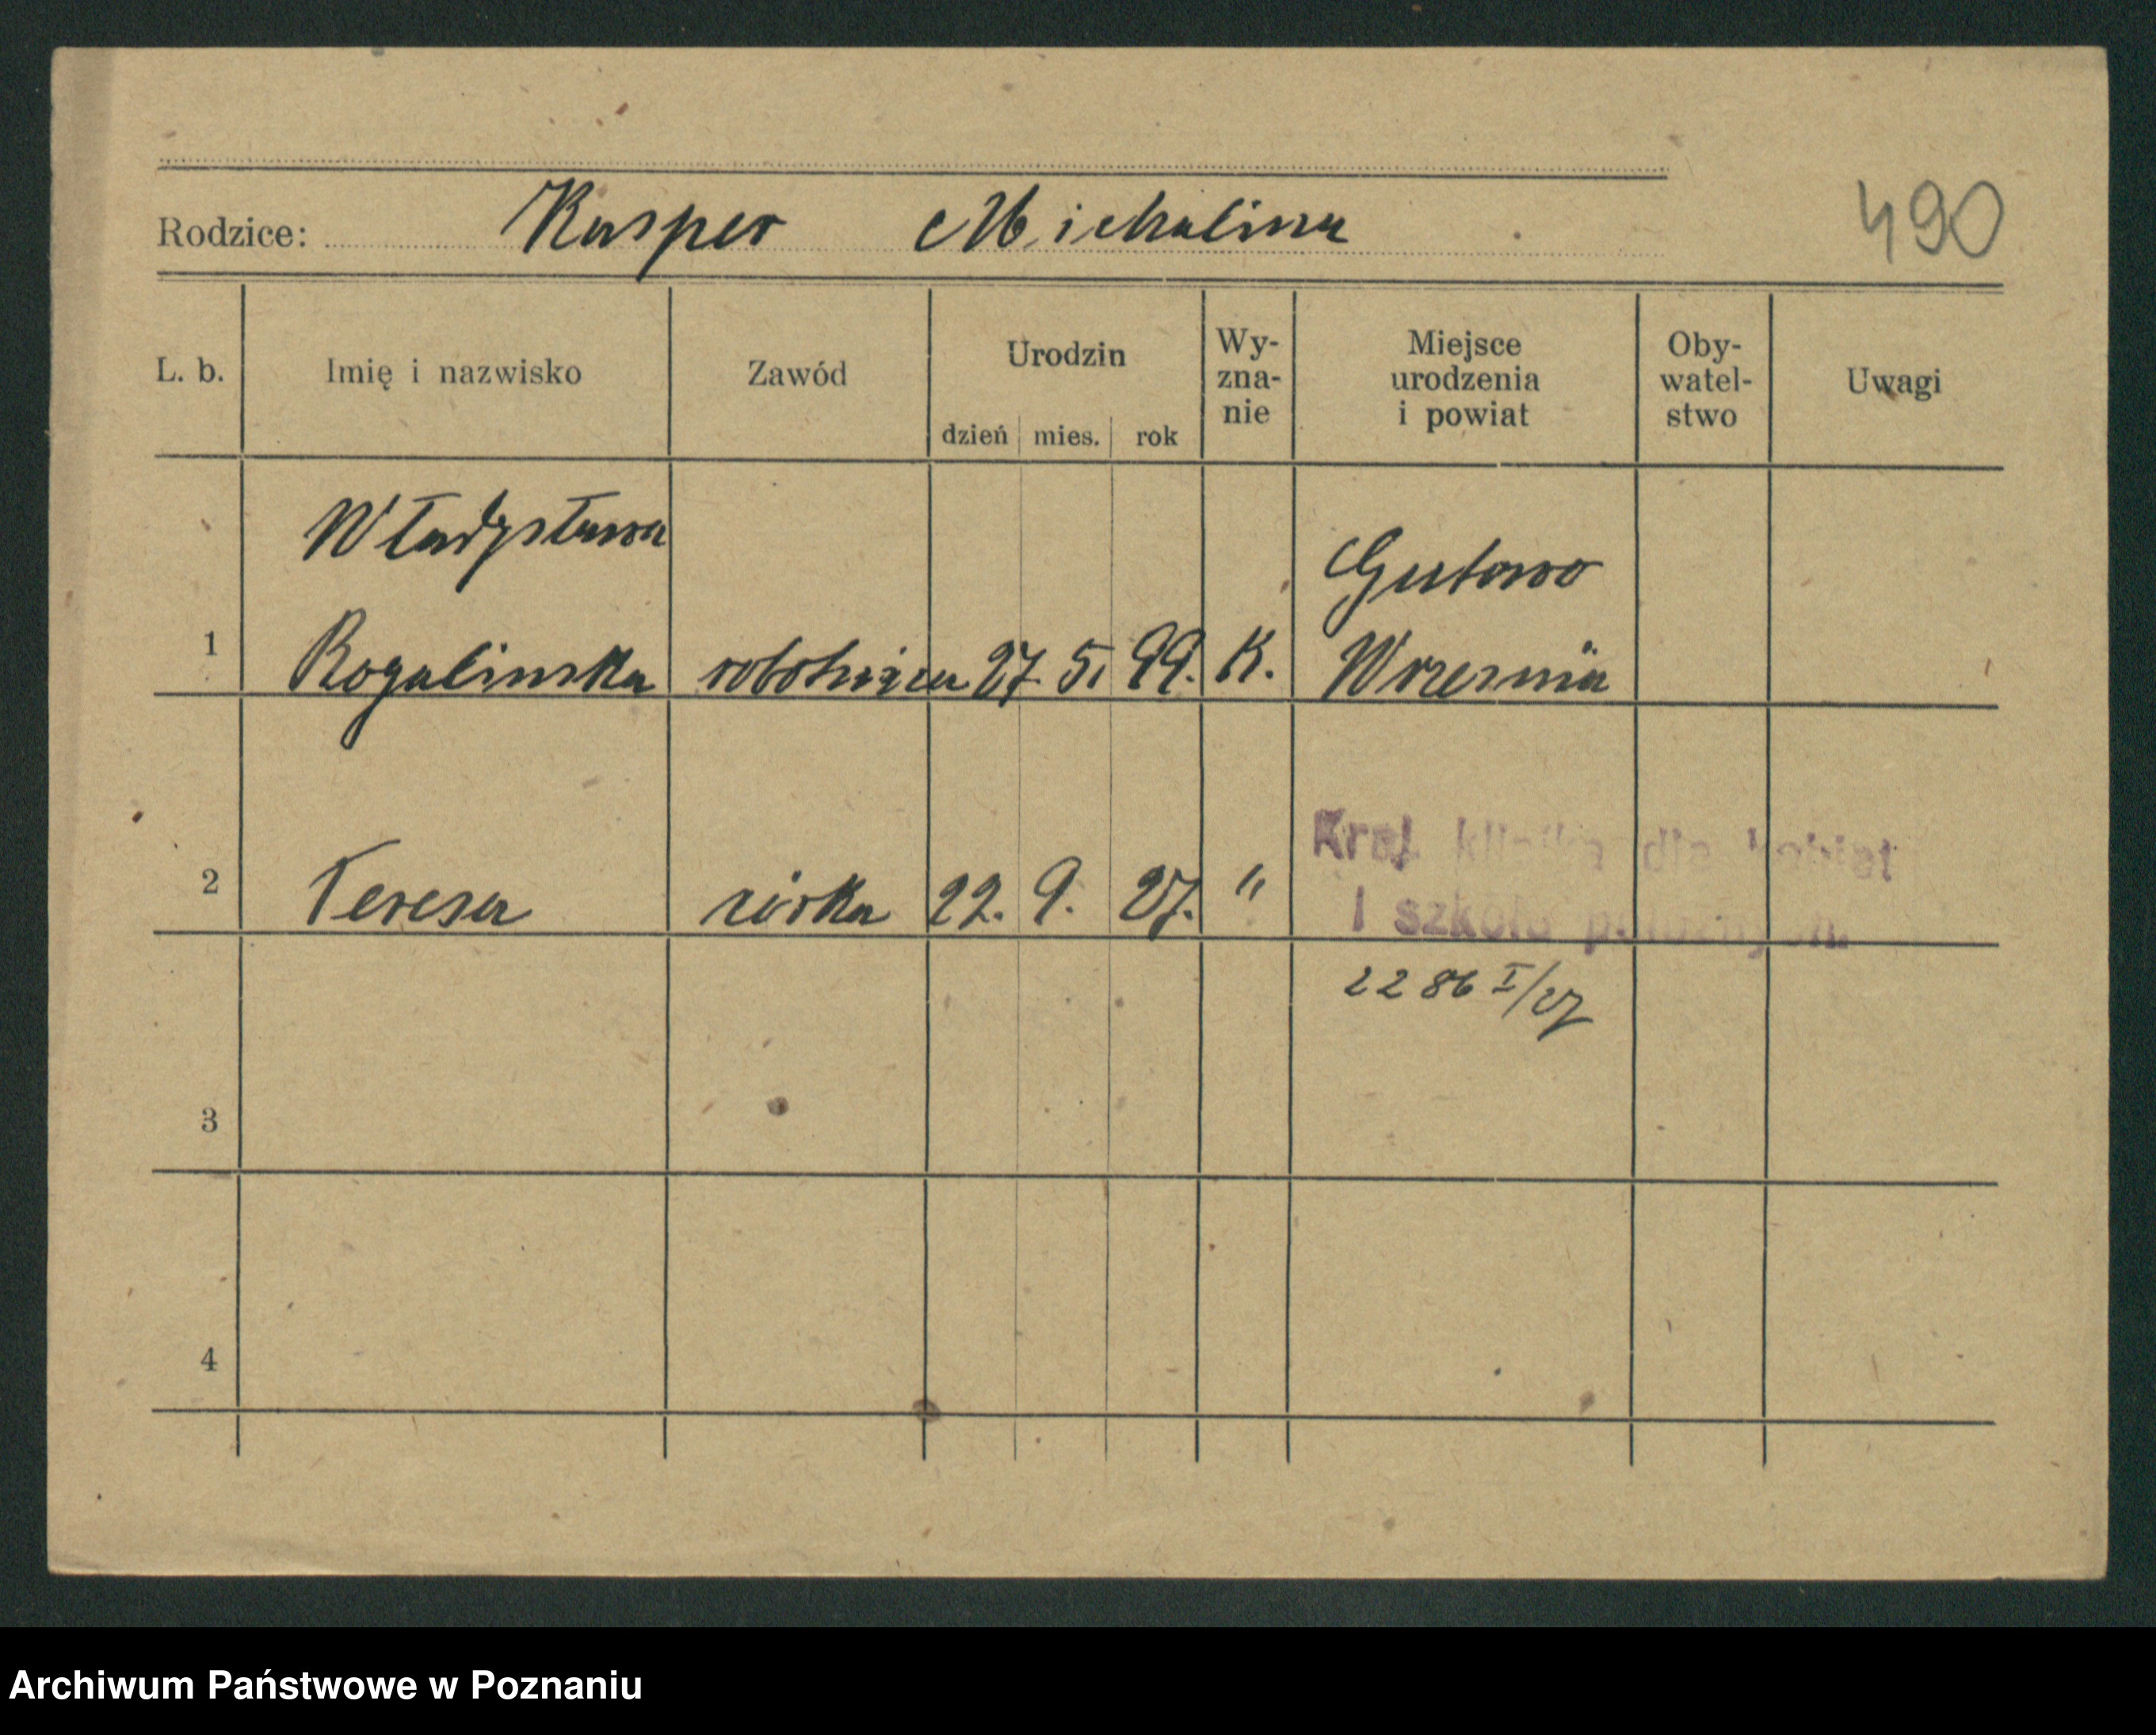 Rodzice: Kasper Michalina
490
L. b. Imię i nazwisko Zawód Urodzin dzień mies. rok Wy-zna-nie Miejsce urodzenia i powiat Oby-watel-stwo Uwagi
Władysława
Gutowo
1 Rogalinska robotnica 27. 5. 99. K. Wrzesnia
Kraj. klinika dla kobiet
2 Teresa córka 22. 9. 27. "
i szkoła położnych.
2286 I/27
3
4
Archiwum Państwowe w Poznaniu